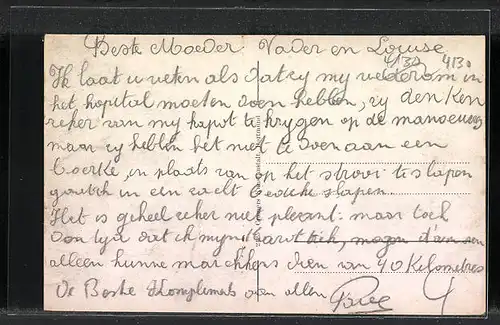 Beste Moeder Vader en Louise
413a 4130
Ik laat u weten als dat zy my wederom in
het hopital moeten doen hebben, zy den ken
zeker van my kapot te krygen op de manoeuvers
maar zy hebben het niet te doen aan een
boerke, in plaats van op het strooi te slapen
in een zacht bedeke slapen.
Het is geheel zeker niet plezant: maar toch
dat ik myn
alleen hunne marchkens doen van 40 Kilometres
De Beste Kompliments aen allen